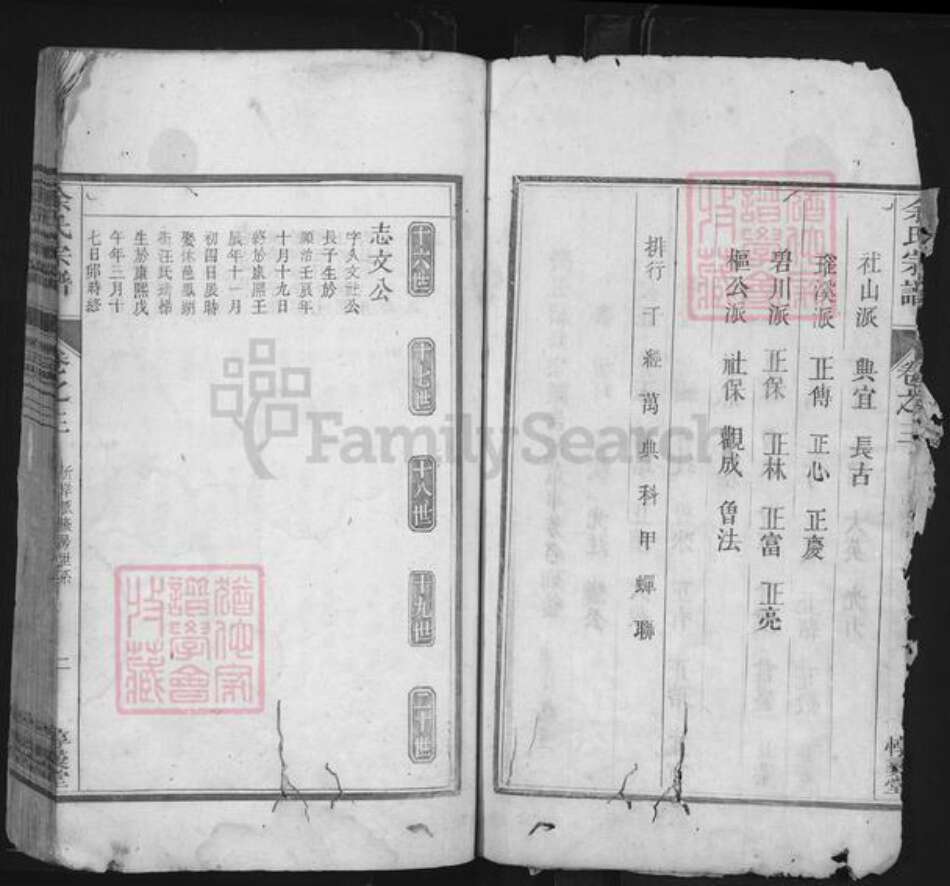 余氏宗譜
卷之三
社山派 典宜 長古
瑤溪派 正傳 正心 正慶
碧川派 正保 正林 正富 正亮
樞公派 社保 觀成 魯法
排行 千 經 萬 典 科 甲 蟬 聯
十六世 十七世 十八世 十九世 二十世
志文公
長子生於
順治壬辰年
十月十九日
終於康熙壬
辰年十一月
初四日辰時
生於康熙戊
午年三月十
七日卯時終
卷之三
一
FamilySearch
譜學會
收藏